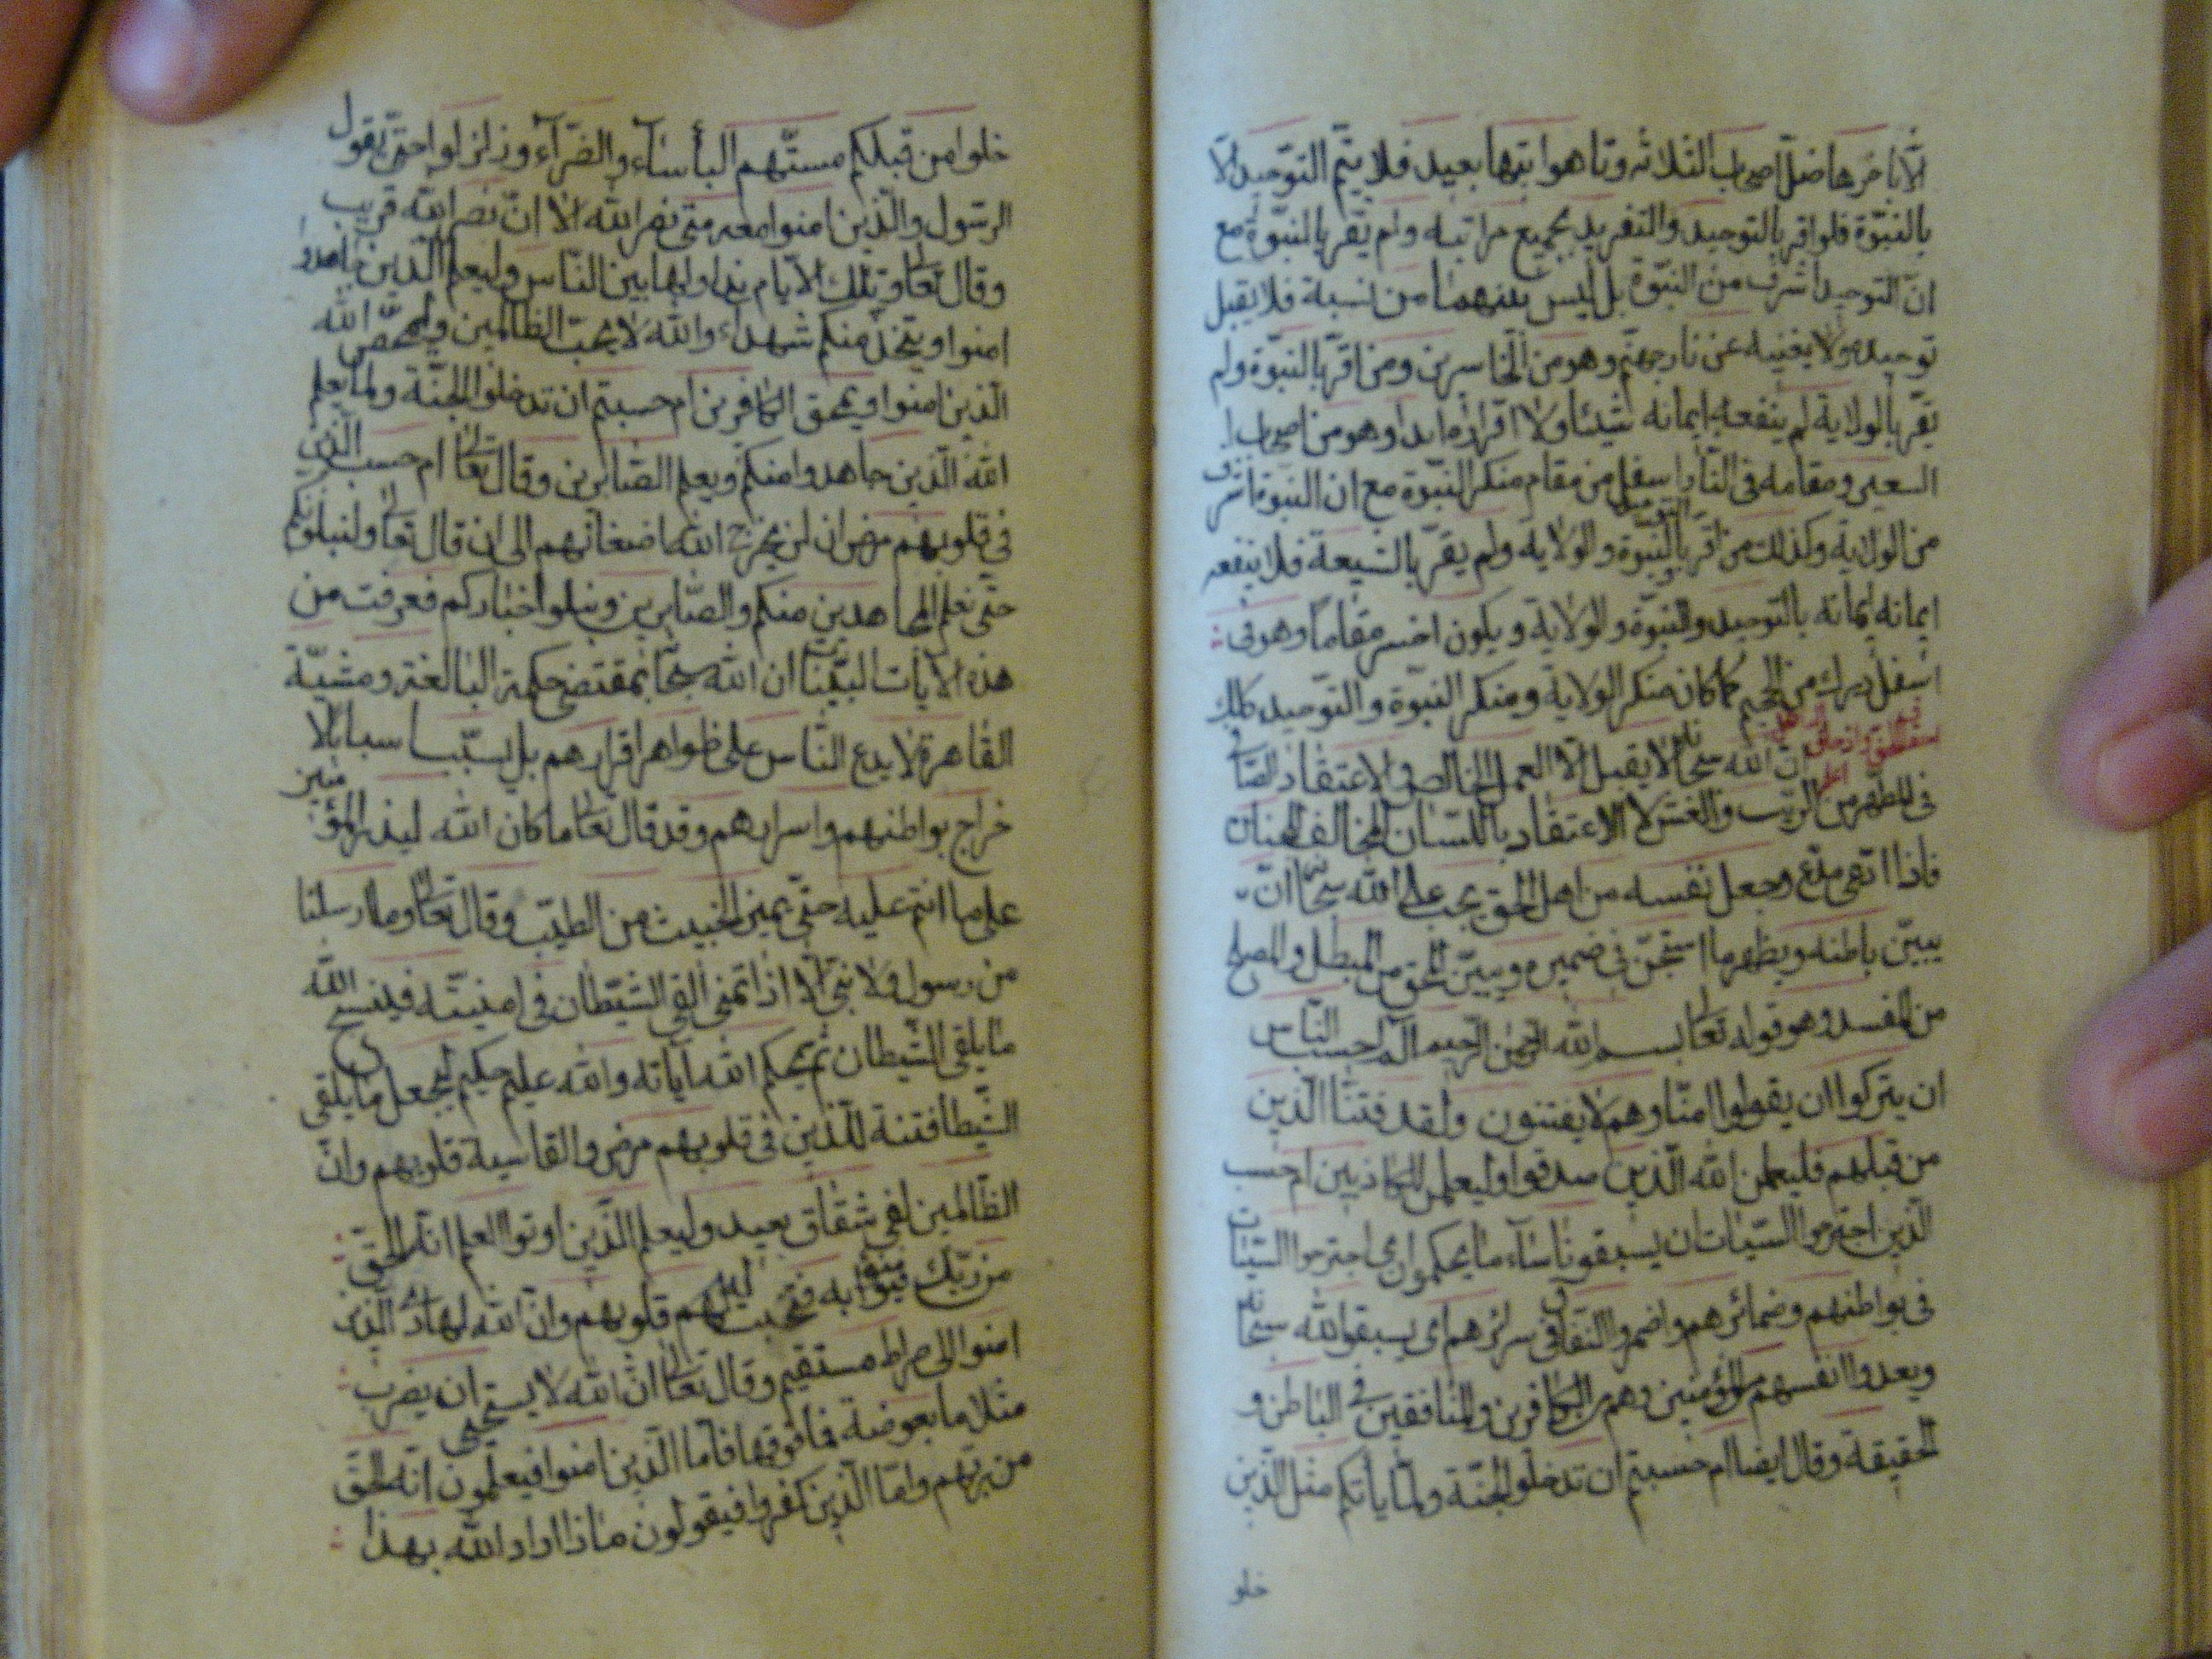 الّا باخرها ضلّ اصحاب الثلاثه وتاهوا تيها بعيد فلا يتمّ التوّحيد الّا
بالنبوّة فلو اقر بالتوحيد والتفريد بجميع مراتبه ولم يقر بالنبوّة مع
انّ التوحيد اشرف من النبوّة بل ليس بينهما من نسبة فلا يقبل
توحيده ولا يغنيه عن نار جهنّم وهو من الخاسرين ومن اقرّ بالنبوّة ولم
يقرّ بالولاية لم ينفعه ايمانه شيئا ولا اقراره ابدا وهو من اصحاب
السعير ومقامه فى النّار اسفل من مقام منكر النبوّة مع ان النبوة اشرف
من الولاية وكذلك من اقرّ بالتوحيد والنبوّة والولاية ولم يقرّ بالشيعة فلا ينفعه
ايمانه ايمانه بالتوحيد والنبوّة والولاية ويكون اخسر مقاماً وهو فى
اسفل درك من الجحيم كما كان منكر الولاية ومنكر النبوّة والتوّحيد كذلك
انّ الله سبحانه لا يقبل الّا العمل الخالص والاعتقاد الصّافى
فى المطهّر من الريب والغش لا الاعتقاد باللسان المخالف للجنان
فاذا ادّعى مدّع وجعل نفسه من اهل الحق يجب على الله سبحانه انّ
يبيّن باطنه ويظهر ما استجنّ فى ضميره ويبيّن المحق من المبطل والمصلح
من المفسد وهو قوله تعالى بسم الله الرّحمن الرّحيم الم احسب النّاس
ان يتركوا ان يقولوا امنّا وهم لا يفتنون ولقد فتنّا الّذين
من قبلهم فليعلمن الله الّذين صدقوا وليعلمن الكاذبين ام حسب
الّذين اجترحوا السّيّات ان يسبقونا ساء ما يحكمون اى اجترحوا السّيّئات
فى بواطنهم وضمائرهم واضمروا النّفاق فى سرائرهم اى يسبقوا الله سبحانه
ويعدوا انفسهم من المؤمنين وهم من الكافرين والمنافقين فى الباطن و
الحقيقة وقال ايضا ام حسبتم ان تدخلوا الجنّة ولمّا يأتكم مثل الذّين
خلو
خلوا من قبلكم مسّتهم البأساء والضّرآء وزلزلوا حتىّ يقول
الرّسول والّذين امنوا معه متى نصر الله الا انّ نصر الله قريب
وقال تعالى وتلك الايّام نداولها بين النّاس وليعلم الّذين جاهدوا
امنوا ويتّخذ منكم شهداء والله لا يحبّ الظالمين وليمحّص الله
الّذين امنوا ويمحق الكافرين ام حسبتم ان تدخلوا الجنّة ولما يعلم
الله الّذين جاهدوا منكم ويعلم الصّابرين وقال تعالى ام حسب الّذين
فى قلوبهم مرض ان لن يخرج الله اضغانهم الى ان قال تعالى ولنبلونّكم
حتّى نعلم المجاهدين منكم والصّابرين ونبلوا اخباركم فعرفت من
هذه الايات البيّنات ان الله سبحانه بمقتضى حكمة البالغة ومشيّة
القاهرة لا يدع النّاس على ظواهر اقرارهم بل يسبّب اسبابا لا
خراج بواطنهم واسرارهم وقد قال تعالى ما كان الله ليذر المؤمنين
على ما انتم عليه حتّى يميز الخبيث من الطيّب وقال تعالى وما ارسلنا
من رسول ولا نبىّ الّا اذا تمنى القى الشّيطان فى امنيّته فينسخ الله
ما يلقى الشّيطان ثم يحكم الله آياته والله عليم حكيم ليجعل ما يلقى
الشّيطان فتنة للّذين فى قلوبهم مرض والقاسية قلوبهم وانّ
الظّالمين لفى شقاق بعيد وليعلم الّذين اوتوا العلم انّه الحقّ
من ربّك فيؤمنوا به فتخبت له قلوبهم وانّ الله لهاد الّذين
امنوا الى صراط مستقيم وقال تعالى انّ الله لا يستحيى ان يضرب
مثلا ما بعوضة فما فوقها فأما الّذين امنوا فيعلمون انّه الحق
من ربّهم وامّا الّذين كفروا فيقولون ماذا اراد الله بهذا